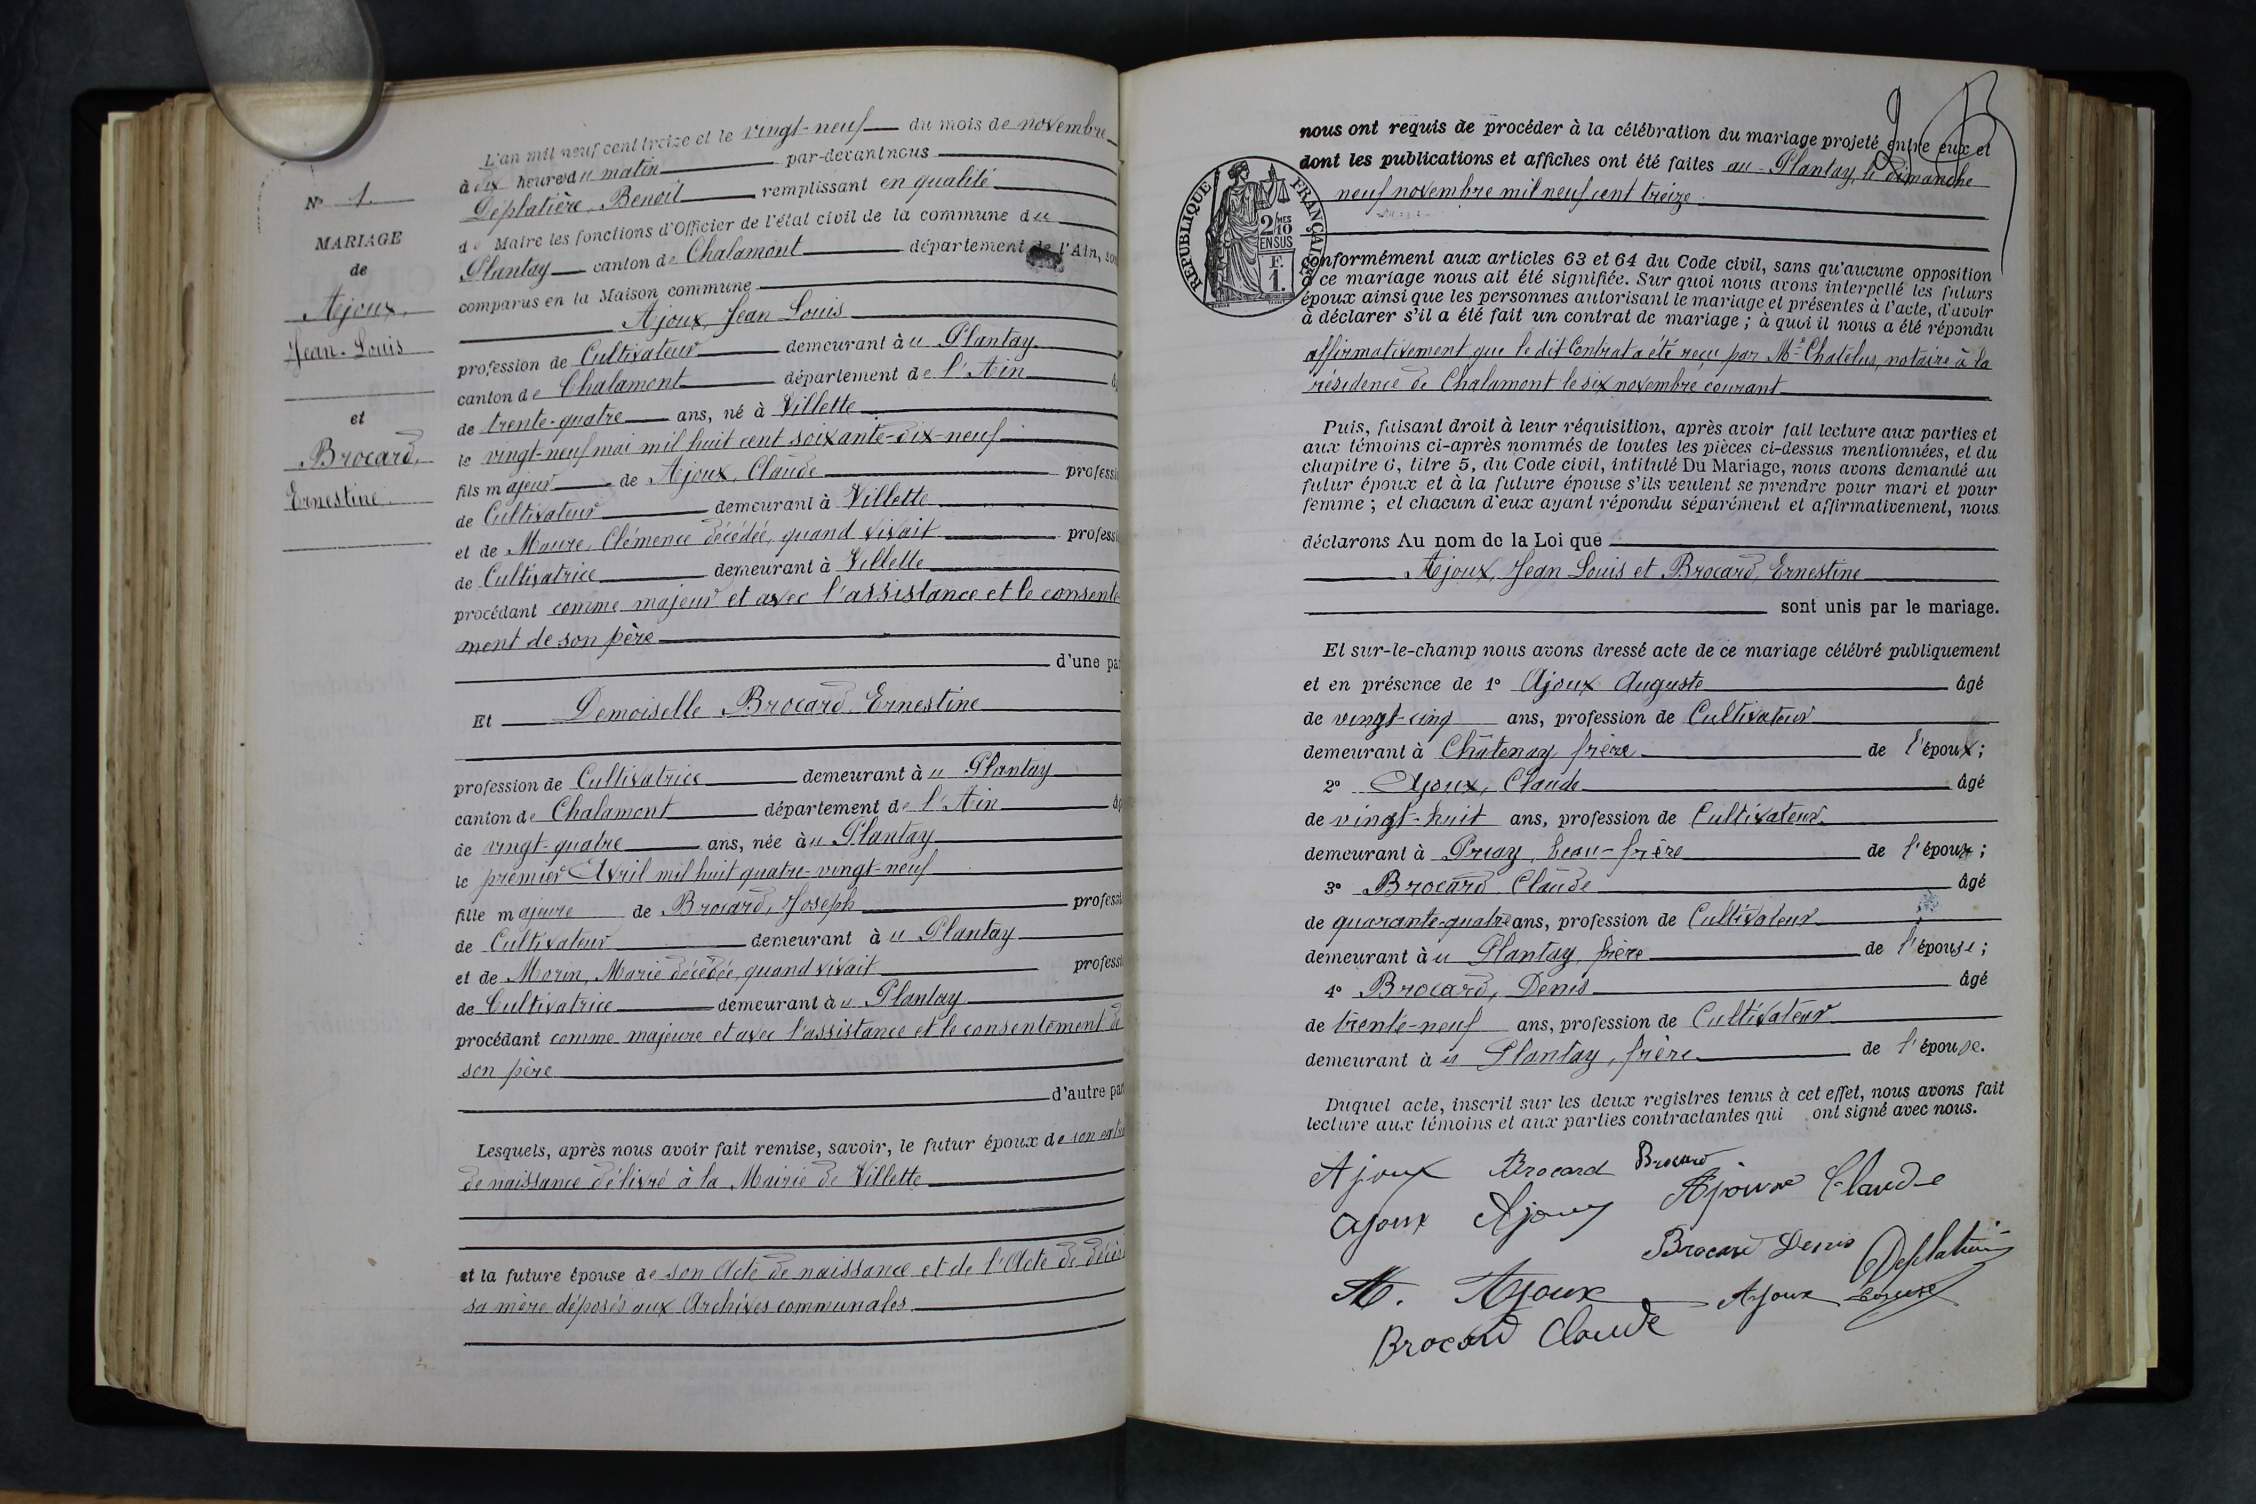 L'an mil neuf cent treize et le vingt-neuf du mois de novembre
à dix heures du matin par-devant nous
Déplatière, Benoit remplissant en qualité
de Maire les fonctions d'Officier de l'état civil de la commune du
Plantay canton de Chalamont département de l'Ain, son
comparus en la Maison commune
Ajoux, Jean Louis
profession de Cultivateur demeurant à u Plantay
canton de Chalamont département de l'Ain
de trente-quatre ans, né à Villette
le vingt-neuf mai mil huit cent soixante-dix-neuf
fils majeur de Ajoux, Claude professi
de Cultivateur demeurant à Villette
et de Maure, Clémence décédée, quand vivait professi
de Cultivatrice demeurant à Villette
procédant comme majeur et avec l'assistance et le consente
ment de son père
d'une par
Et Demoiselle Brocard Ernestine
profession de Cultivatrice demeurant à u Plantay
canton de Chalamont département de l'Ain
de vingt-quatre ans, née à u Plantay
le premier Avril mil huit quatre-vingt-neuf
fille majeure de Brocard, Joseph professi
de Cultivateur demeurant à u Plantay
et de Morin, Marie décédée, quand vivait professi
de Cultivatrice demeurant à u Plantay
procédant comme majeure et avec l'assistance et le consentement de
son père
d'autre par
Lesquels, après nous avoir fait remise, savoir, le futur époux de son
de naissance délivré à la Mairie de Villette
et la future épouse de son Acte de naissance et de l'Acte de décès
sa mère déposés aux Archives communales
N° 1.
MARIAGE
de
Ajoux,
Jean-Louis
et
Brocard,
Ernestine
nous ont requis de procéder à la célébration du mariage projeté entre eux et
dont les publications et affiches ont été faites au Plantay, le dimanche
neuf novembre mil neuf cent treize
RÉPUBLIQUE FRANÇAISE
2/10MES
EN SUS
F.
1.
conformément aux articles 63 et 64 du Code civil, sans qu'aucune opposition
à ce mariage nous ait été signifiée. Sur quoi nous avons interpellé les futurs
époux ainsi que les personnes autorisant le mariage et présentes à l'acte, d'avoir
à déclarer s'il a été fait un contrat de mariage ; à quoi il nous a été répondu
affirmativement que le dit Contrat a été reçu par Me Chatelus, notaire à la
résidence de Chalamont le six novembre courant
Puis, faisant droit à leur réquisition, après avoir fait lecture aux parties et
aux témoins ci-après nommés de toutes les pièces ci-dessus mentionnées, et du
chapitre 6, titre 5, du Code civil, intitulé Du Mariage, nous avons demandé au
futur époux et à la future épouse s'ils veulent se prendre pour mari et pour
femme ; et chacun d'eux ayant répondu séparément et affirmativement, nous
déclarons Au nom de la Loi que
Ajoux, Jean Louis et Brocard, Ernestine
sont unis par le mariage.
Et sur-le-champ nous avons dressé acte de ce mariage célébré publiquement
et en présence de 1° Ajoux Auguste âgé
de vingt-cinq ans, profession de Cultivateur
demeurant à Châtenay frère de l'époux ;
2° Ajoux, Claude âgé
de vingt-huit ans, profession de Cultivateur
demeurant à Priay, beau-frère de l'époux ;
3° Brocard Claude âgé
de quarante-quatre ans, profession de Cultivateur
demeurant à u Plantay, frère de l'épouse ;
4° Brocard, Denis âgé
de trente-neuf ans, profession de Cultivateur
demeurant à u Plantay, frère de l'épouse.
Duquel acte, inscrit sur les deux registres tenus à cet effet, nous avons fait
lecture aux témoins et aux parties contractantes qui ont signé avec nous.
Ajoux Brocard Brocard
Ajoux Ajoux Ajoux Claude
Brocard Denis Deplatière
M. Ajoux Ajoux Louise
Brocard Claude